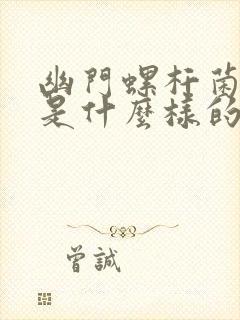 幽門螺杆菌
是什麼樣的
曾誠